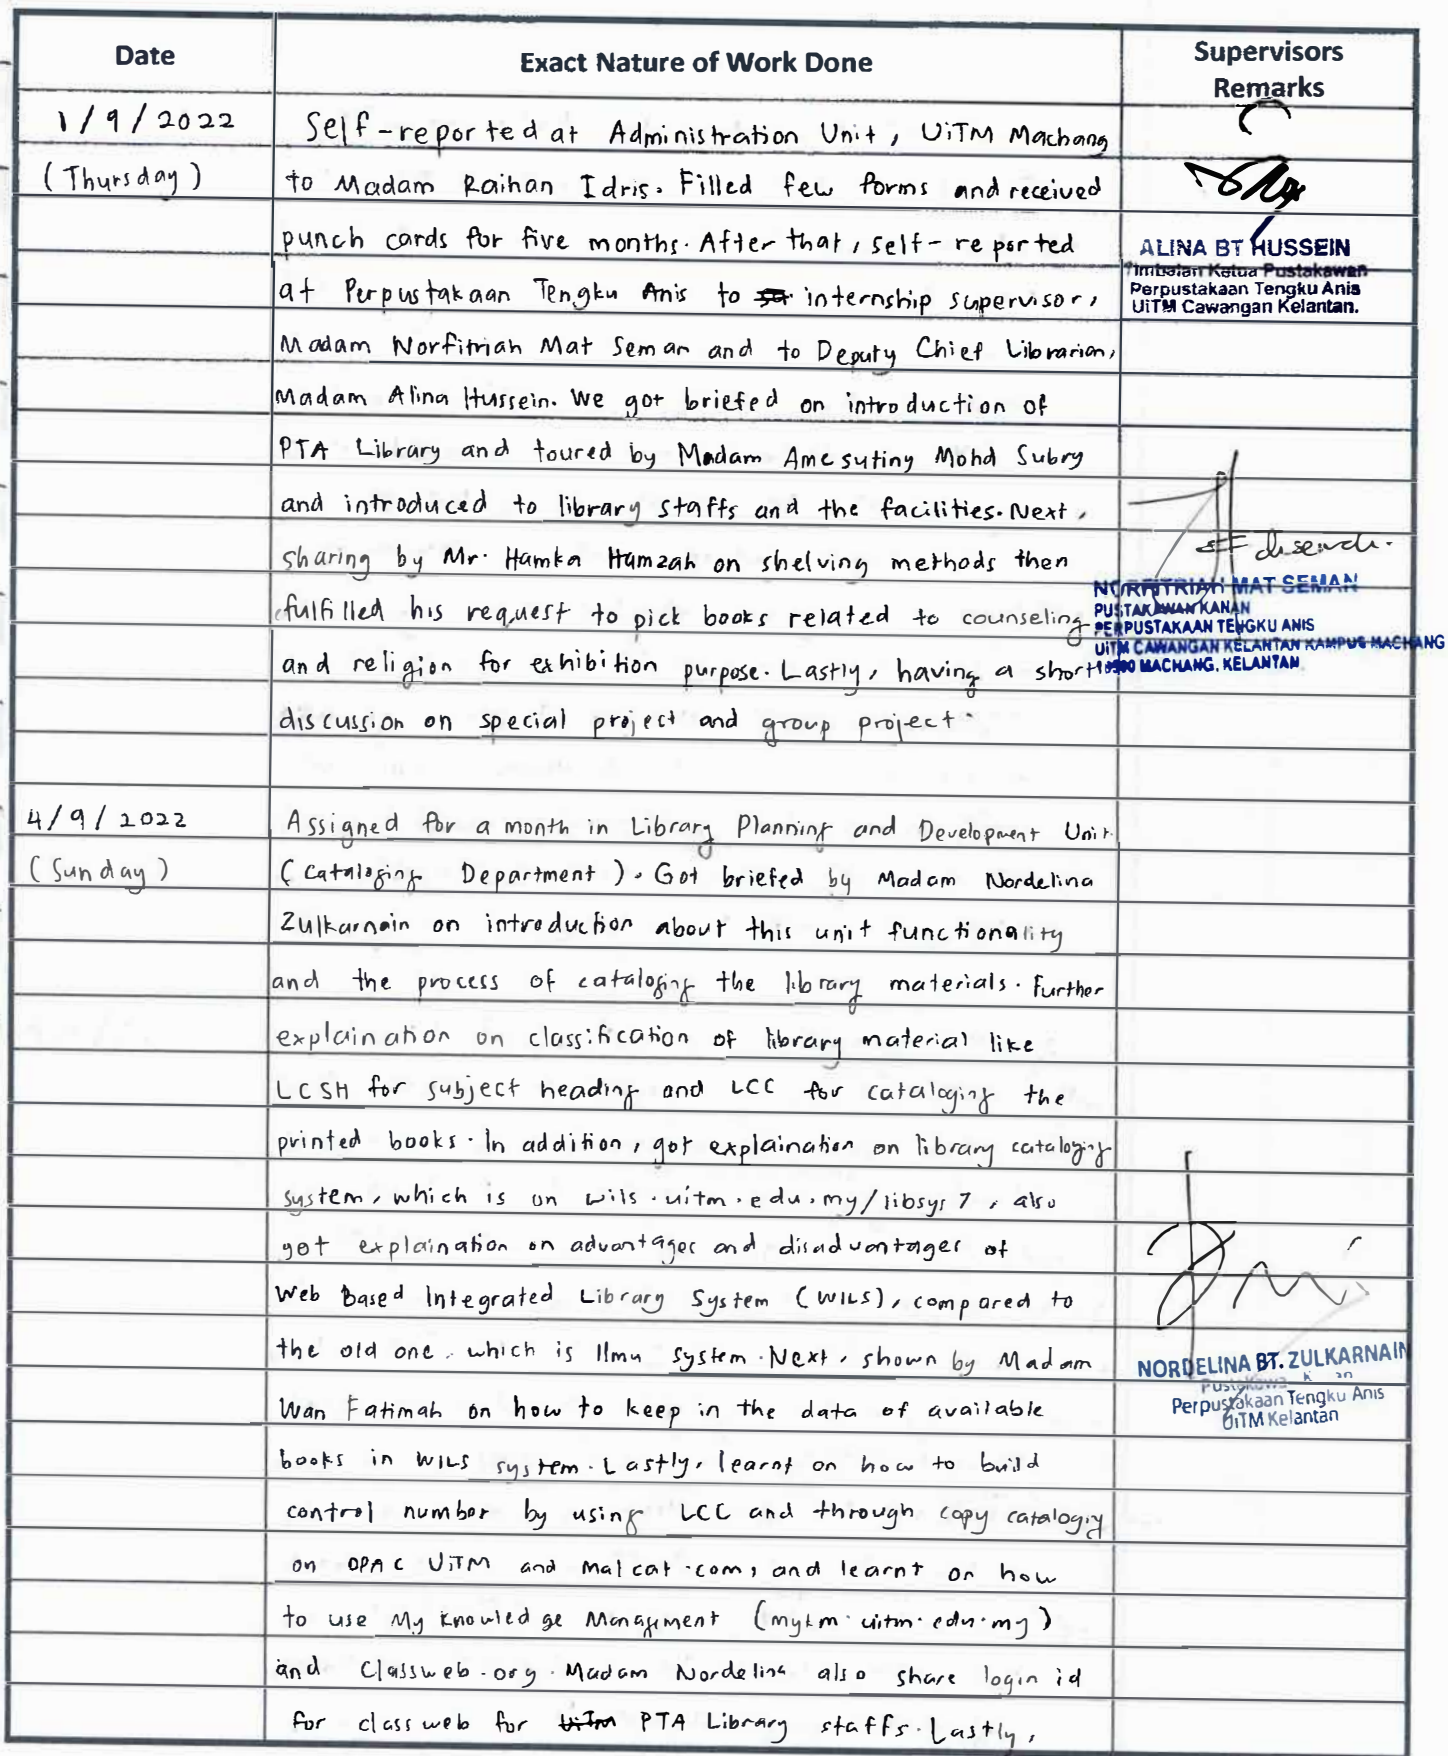 Date
Exact Nature of Work Done
Supervisors
Remarks
1/9/2022
(Thursday)
Self-reported at Administration Unit, UiTM Machang
to Madam Raihan Idris. Filled few forms and received
punch cards for five months. After that, self-reported
at Perpustakaan Tengku Anis to internship supervisor,
Madam Norfitriah Mat Seman and to Deputy Chief Librarian,
Madam Alina Hussein. We got briefed on introduction of
PTA Library and toured by Madam Amesutiny Mohd Subry
and introduced to library staffs and the facilities. Next,
sharing by Mr. Hamka Hamzah on shelving methods then
fulfilled his request to pick books related to counseling
and religion for exhibition purpose. Lastly, having a short
discussion on special project and group project.
ALINA BT HUSSEIN
Timbalan Ketua Pustakawan
Perpustakaan Tengku Anis
UiTM Cawangan Kelantan.
NORFITRIAH MAT SEMAN
PUSTAKAWAN KANAN
PERPUSTAKAAN TENGKU ANIS
UiTM CAWANGAN KELANTAN KAMPUS MACHANG
MACHANG, KELANTAN
4/9/2022
(Sunday)
Assigned for a month in Library Planning and Development Unit
(Cataloging Department). Got briefed by Madam Nordelina
Zulkarnain on introduction about this unit functionality
and the process of cataloging the library materials. Further
explaination on classification of library material like
LCSH for subject heading and LCC for cataloging the
printed books. In addition, got explaination on library cataloging
system, which is on wils.uitm.edu.my/libsys7, also
got explaination on advantages and disadvantages of
Web Based Integrated Library System (WILS), compared to
the old one, which is Ilmu system. Next, shown by Madam
Wan Fatimah on how to keep in the data of available
books in WILS system. Lastly, learnt on how to build
control number by using LCC and through copy cataloging
on OPAC UiTM and malcat.com, and learnt on how
to use My Knowledge Management (mykm.uitm.edu.my)
and Classweb.org. Madam Nordelina also share login id
for classweb for UiTM PTA Library staffs. Lastly,
NORDELINA BT. ZULKARNAIN
Perpustakaan Tengku Anis
UiTM Kelantan